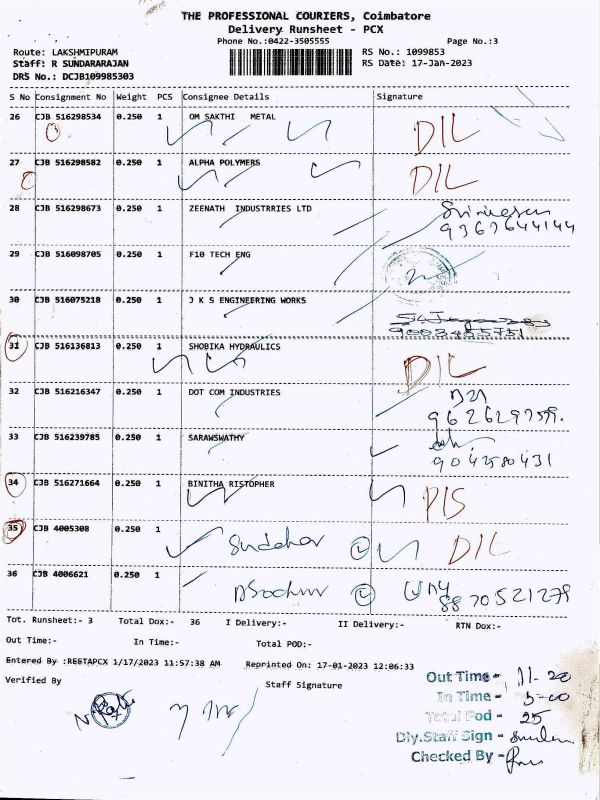 THE PROFESSIONAL COURIERS, Coimbatore
Delivery Runsheet - PCX
Phone No.:0422-3505555 Page No.:3
Route: LAKSHMIPURAM RS No.: 1099853
Staff: R SUNDARARAJAN RS Date: 17-Jan-2023
DRS No.: DCJB109985303
S No Consignment No Weight PCS Consignee Details Signature
26 CJB 516298534 0.250 1 OM SAKTHI METAL
DIL
27 CJB 516298582 0.250 1 ALPHA POLYMERS
DIL
28 CJB 516298673 0.250 1 ZEENATH INDUSTRRIES LTD
9367644144
29 CJB 516098705 0.250 1 F10 TECH ENG
30 CJB 516075218 0.250 1 J K S ENGINEERING WORKS
31 CJB 516136813 0.250 1 SHOBIKA HYDRAULICS
DIL
32 CJB 516216347 0.250 1 DOT COM INDUSTRIES
33 CJB 516239785 0.250 1 SARAWSWATHY
9042580431
34 CJB 516271664 0.250 1 BINITHA RISTOPHER
PIS
35 CJB 4005308 0.250 1
DIL
36 CJB 4006621 0.250 1
8870521279
Tot. Runsheet:- 3 Total Dox:- 36 I Delivery:- II Delivery:- RTN Dox:-
Out Time:- In Time:- Total POD:-
Entered By :REETAPCX 1/17/2023 11:57:38 AM Reprinted On: 17-01-2023 12:06:33
Verified By Staff Signature
Out Time - 11-20
In Time - 5-00
Total Pod - 25
Dly.Staff Sign -
Checked By -